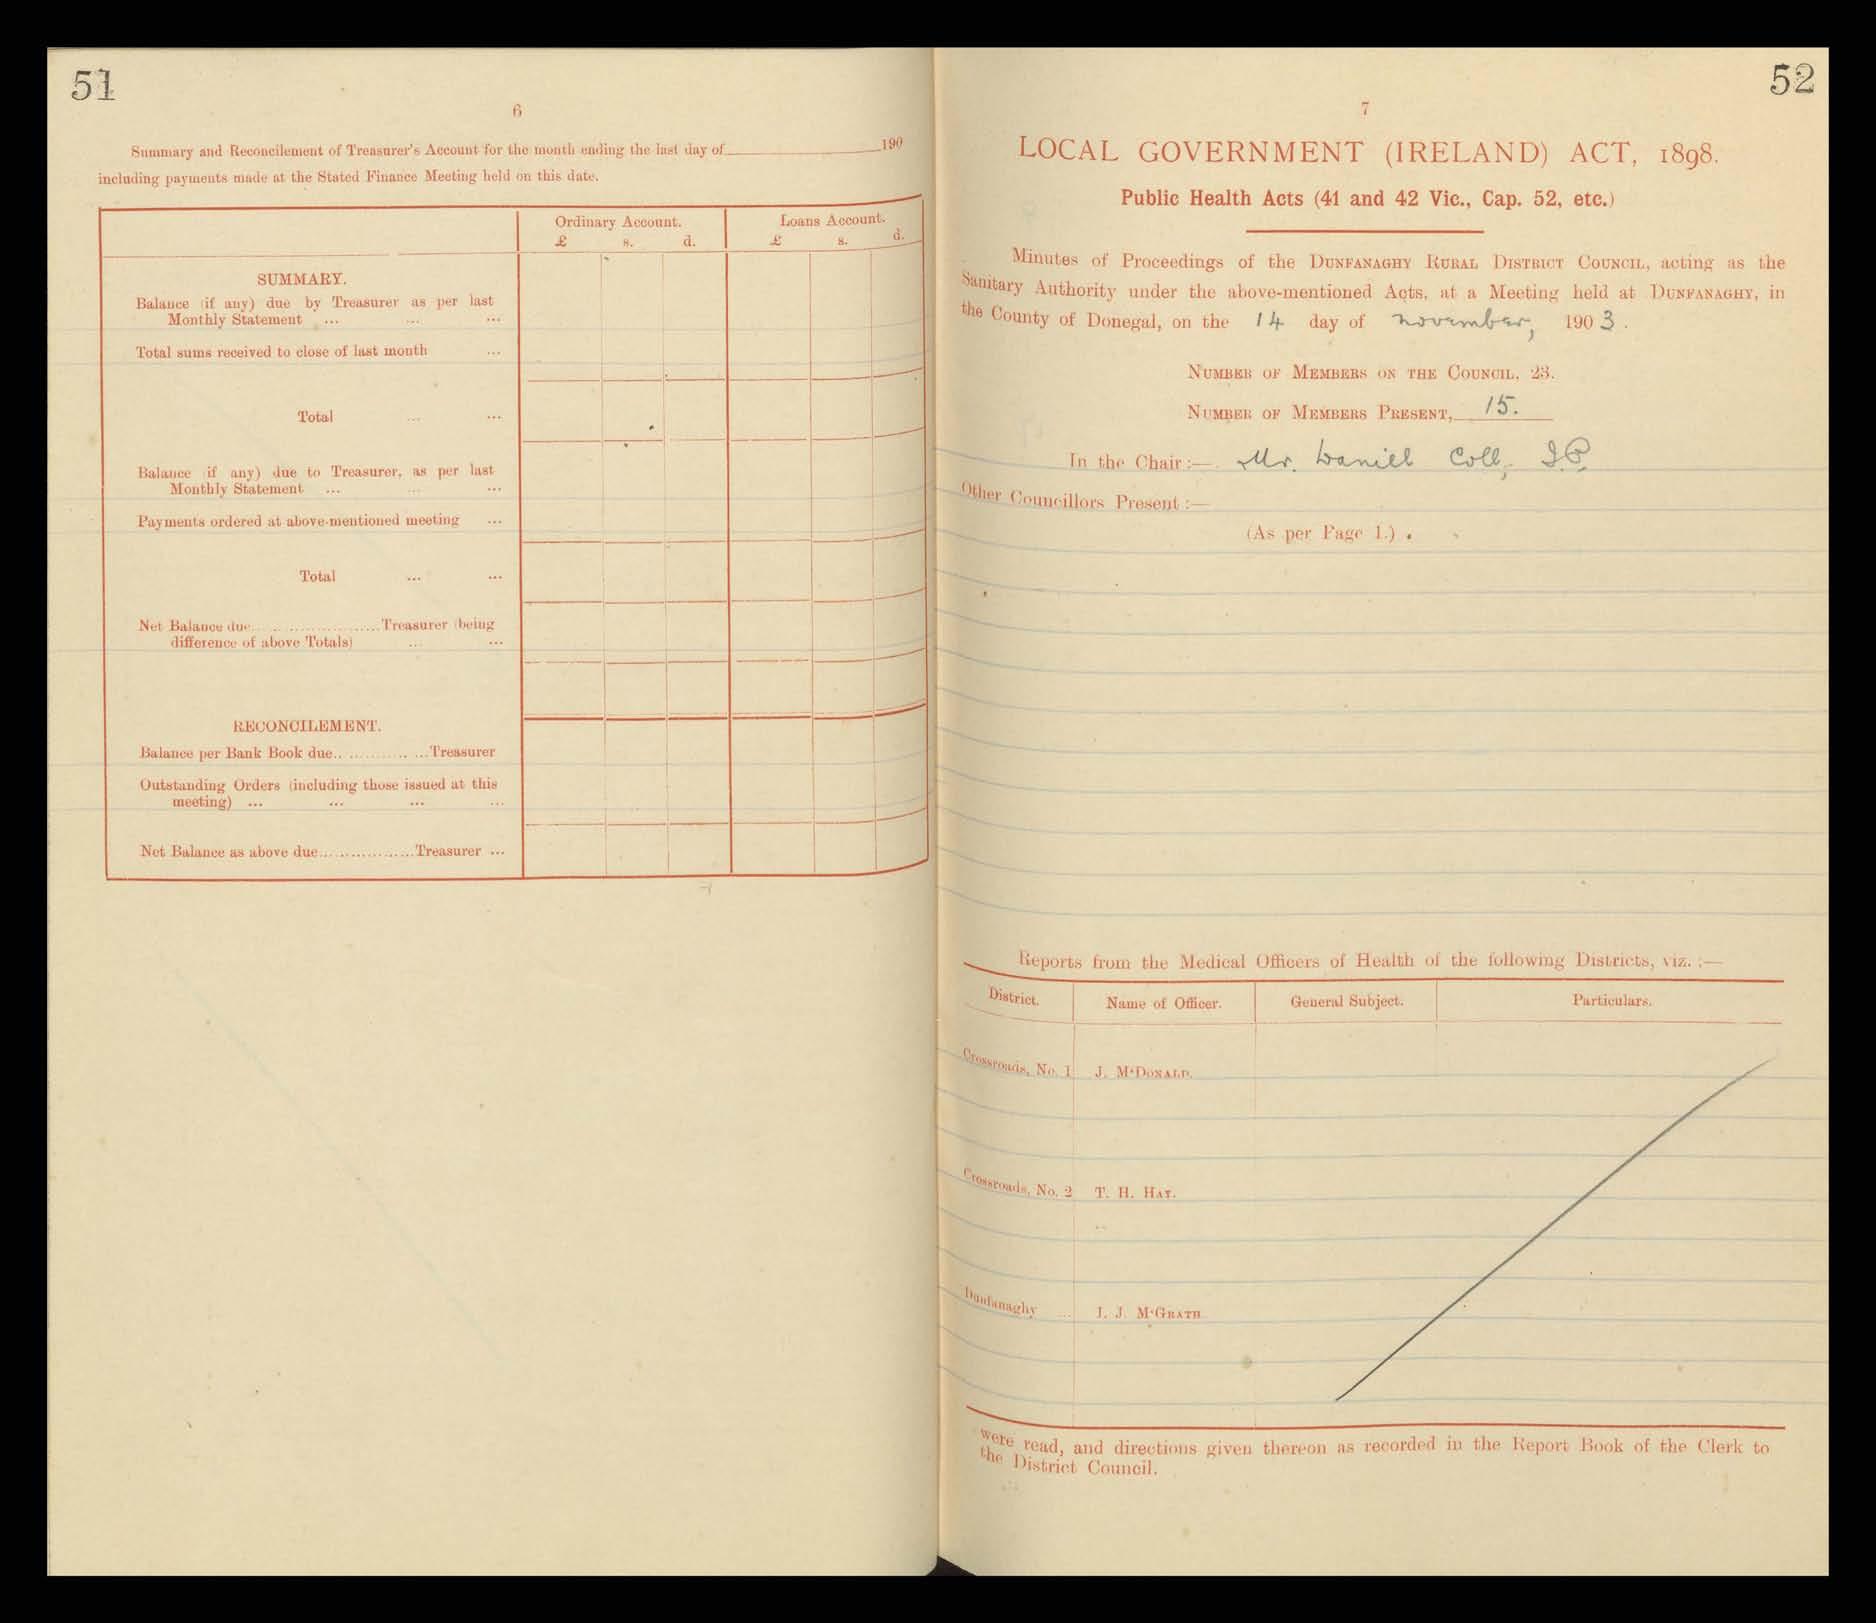 51
6
Summary and Reconcilement of Treasurer's Account for the month ending the last day of 190
including payments made at the Stated Finance Meeting held on this date.
Ordinary Account. Loans Account.
£ s. d. £ s. d.
SUMMARY.
Balance (if any) due by Treasurer as per last
Monthly Statement ... ... ...
Total sums received to close of last month ...
Total ... ...
Balance (if any) due to Treasurer, as per last
Monthly Statement ... ... ...
Payments ordered at above-mentioned meeting ...
Total ... ...
Net Balance due........................Treasurer (being
difference of above Totals) ... ...
RECONCILEMENT.
Balance per Bank Book due..................Treasurer
Outstanding Orders (including those issued at this
meeting) ... ... ... ...
Net Balance as above due..................Treasurer ...
52
7
LOCAL GOVERNMENT (IRELAND) ACT, 1898.
Public Health Acts (41 and 42 Vic., Cap. 52, etc.)
Minutes of Proceedings of the DUNFANAGHY RURAL DISTRICT COUNCIL, acting as the
Sanitary Authority under the above-mentioned Acts, at a Meeting held at DUNFANAGHY, in
the County of Donegal, on the 14 day of november, 1903.
NUMBER OF MEMBERS ON THE COUNCIL, 23.
NUMBER OF MEMBERS PRESENT, 15.
In the Chair :— Mr. Daniel Coll, J.P.
Other Councillors Present :—
(As per Page 1.)
Reports from the Medical Officers of Health of the following Districts, viz. :—
District. Name of Officer. General Subject. Particulars.
Crossroads, No. 1 J. McDONALD.
Crossroads, No. 2 T. H. HAY.
Dunfanaghy ... J. J. McGRATH
were read, and directions given thereon as recorded in the Report Book of the Clerk to
the District Council.